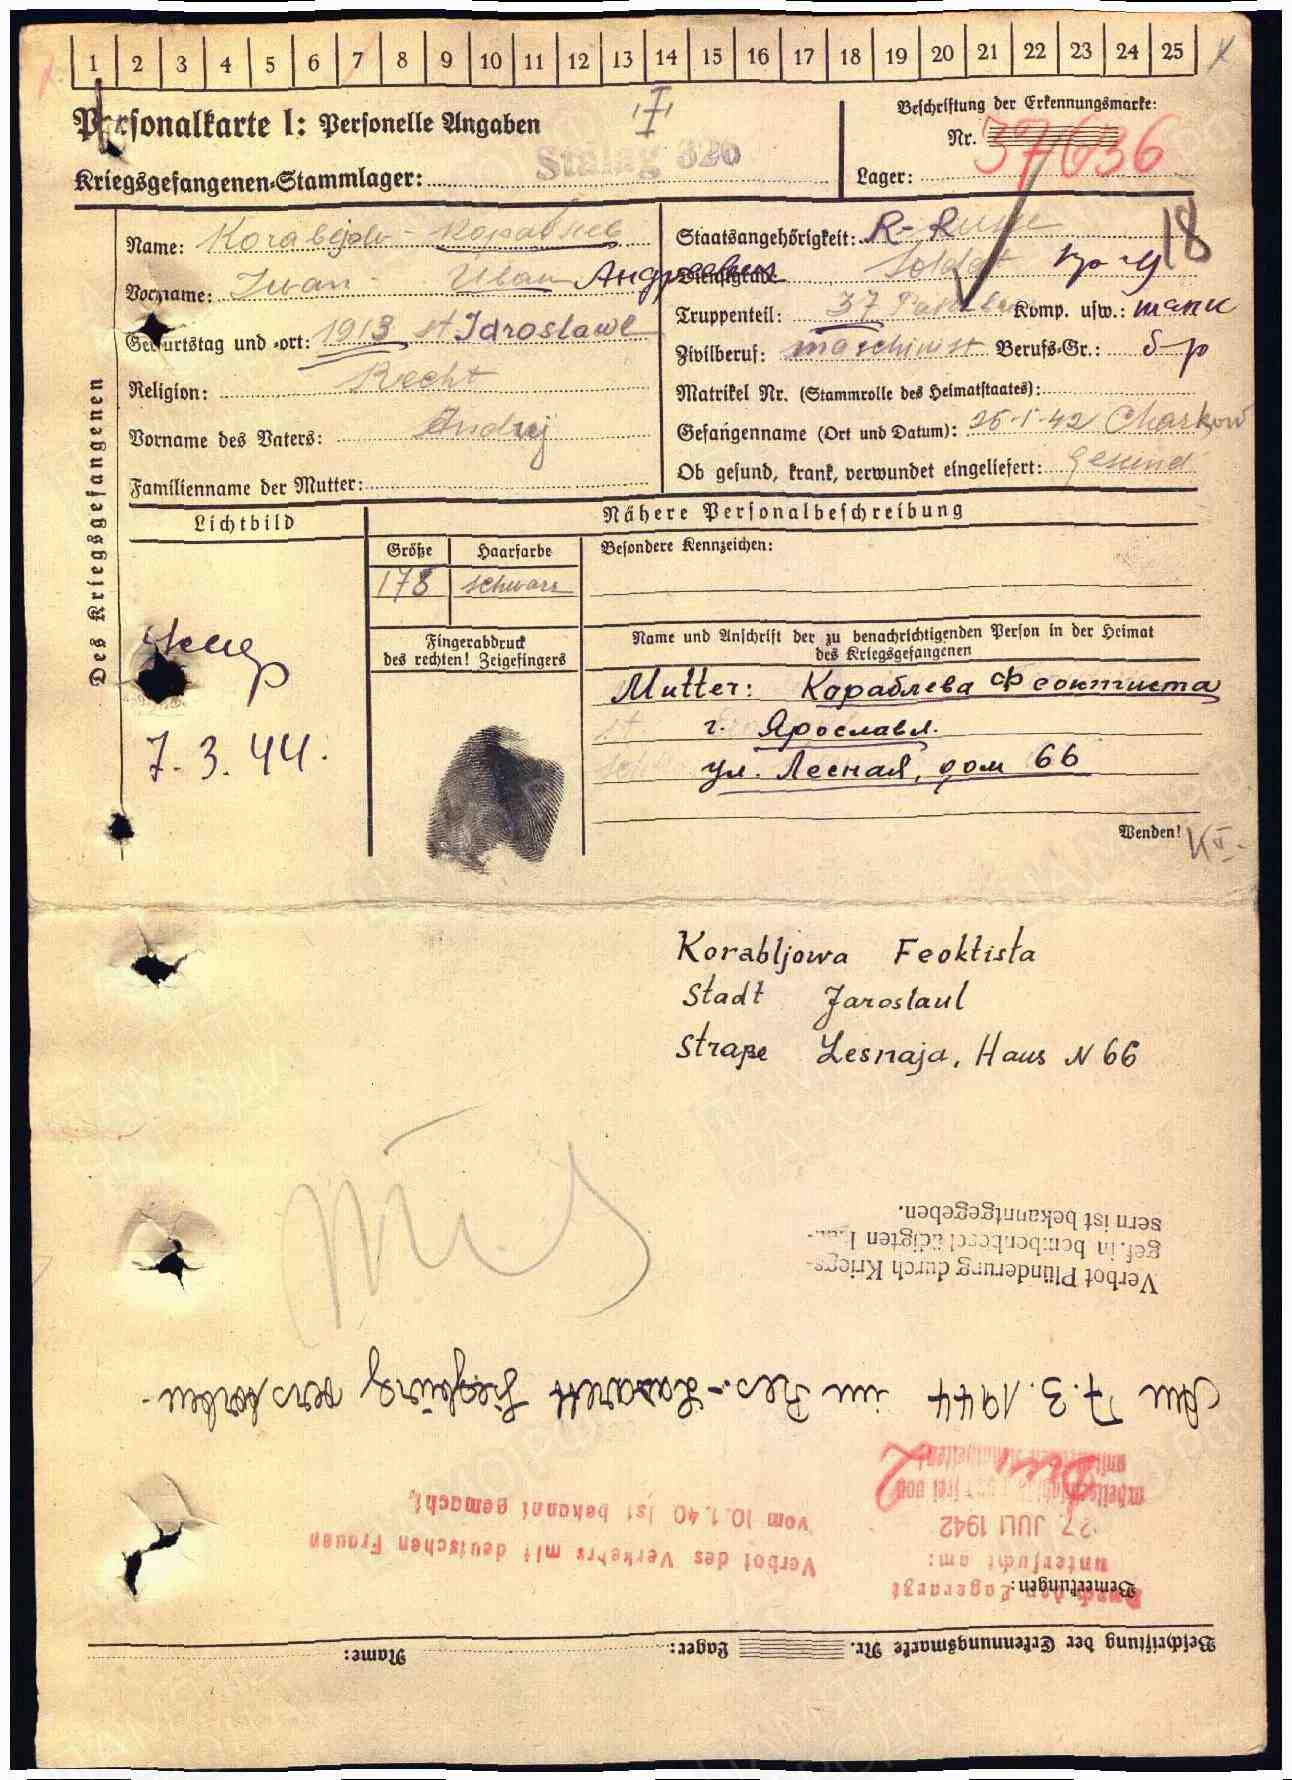 1 2 3 4 5 6 7 8 9 10 11 12 13 14 15 16 17 18 19 20 21 22 23 24 25
Personalkarte I: Personelle Angaben
Beschriftung der Erkennungsmarke:
Nr. 37636
Kriegsgefangenen-Stammlager: Stalag 326
Lager:
Des Kriegsgefangenen
Name: Korabljow - Кораблев
Vorname: Iwan Иван Андреевич
Geburtstag und -ort: 1913 st Jaroslawl
Religion: Recht
Vorname des Vaters: Andrej
Familienname der Mutter:
Staatsangehörigkeit: R-Russe
18
Dienstgrad: Soldat кр-ц
Truppenteil: 37 Komp. usw.:
Zivilberuf: Maschinist Berufs-Gr.: б-р
Matrikel Nr. (Stammrolle des Heimatstaates):
Gefangenname (Ort und Datum): 25-1-42 Charkow
Ob gesund, krank, verwundet eingeliefert: Gesund
Lichtbild
Nähere Personalbeschreibung
Größe Haarfarbe Besondere Kennzeichen:
178 schwarz
Fingerabdruck
des rechten! Zeigefingers
Name und Anschrift der zu benachrichtigenden Person in der Heimat
des Kriegsgefangenen
умер
7.3.44.
Mutter: Кораблева Феоктиста
г. Ярославл.
ул. Лесная, дом 66
Wenden!
Korabljowa Feoktista
Stadt Jaroslaul
Straße Lesnaja, Haus N 66
Verbot Plünderung durch Kriegs-
gef. in bombenbeschädigten
sern ist bekanntgegeben.
Am 7.3.1944 im Res.-Lazarett Siegburg verstorben.
Verbot des Verkehrs mit deutschen Frauen
vom 10.1.40 ist bekannt gemacht.
Durch den Lagerarzt
untersucht am:
27. JULI 1942
Bemerkungen:
Beschriftung der Erkennungsmarke Nr. Lager:
Name: